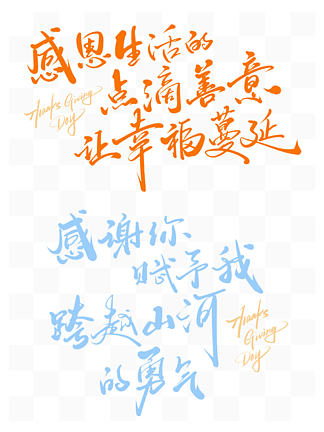 感恩生活的
点滴善意
Thanks Giving
Day
让幸福蔓延
感谢你
赋予我
跨越山河
Thanks
Giving
Day
的勇气